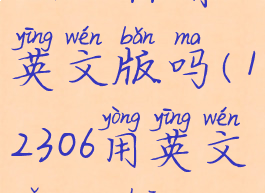 yīng wén bǎn ma
英文版吗(1
yòng yīng wén
2306用英文